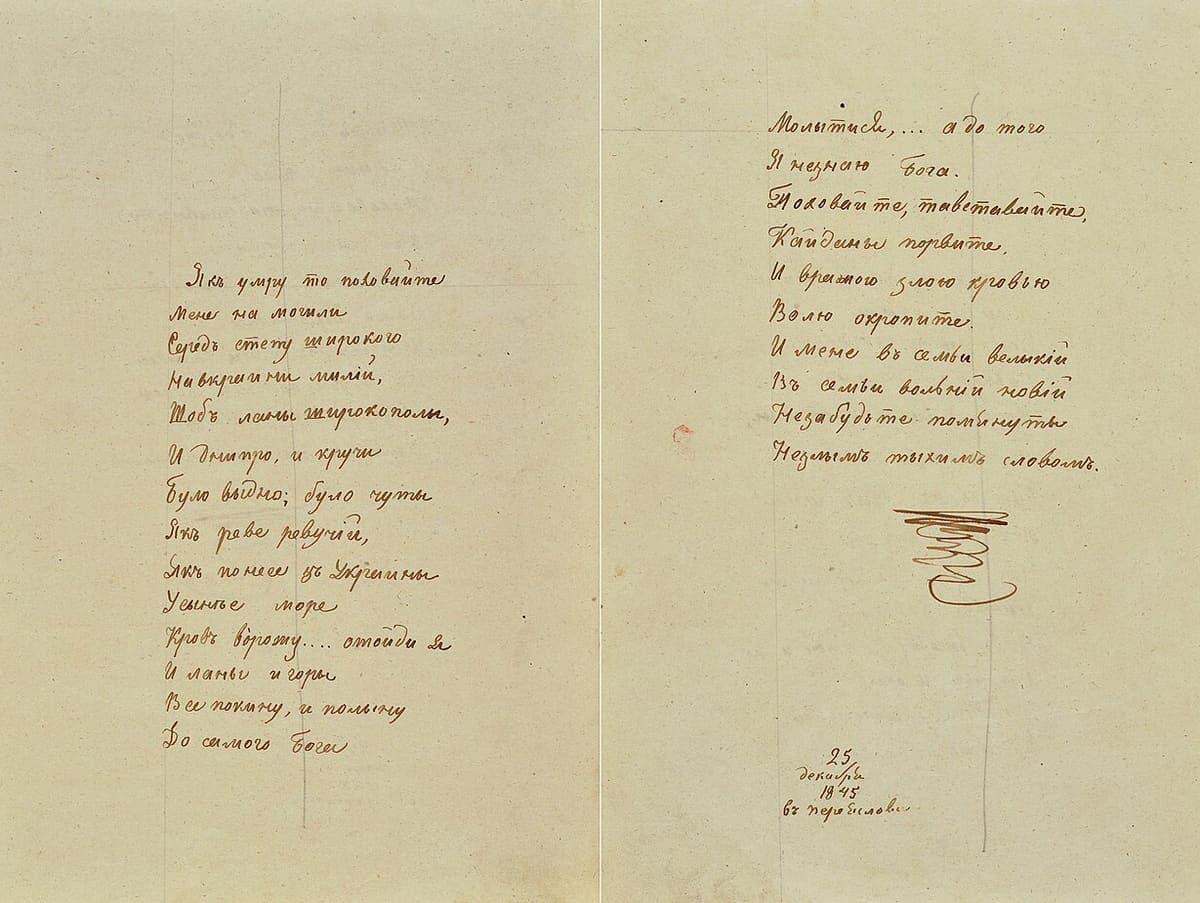 Якъ умру то поховайте
Мене на могили
Середъ степу широкого
Навкраини милій,
Щобъ ланы широкополы,
И Днипро, и кручи
Було выдно; було чуты
Якъ реве ревучій,
Якъ понесе зъ Украины
У сынѣе море
Кровъ ворожу.... отойди я
И ланы и горы
Все покину, и полыну
До самого Бога
Молытися,... а до того
Я незнаю Бога.
Поховайте, тавставайте,
Кайданы порвите,
И вражою злою кровью
Волю окропите.
И мене въ семьи великій
Въ семьи вольній новій
Незабудьте помянуты
Незлымъ тыхимъ словомъ.
25
декабря
1845
въ Переяслови